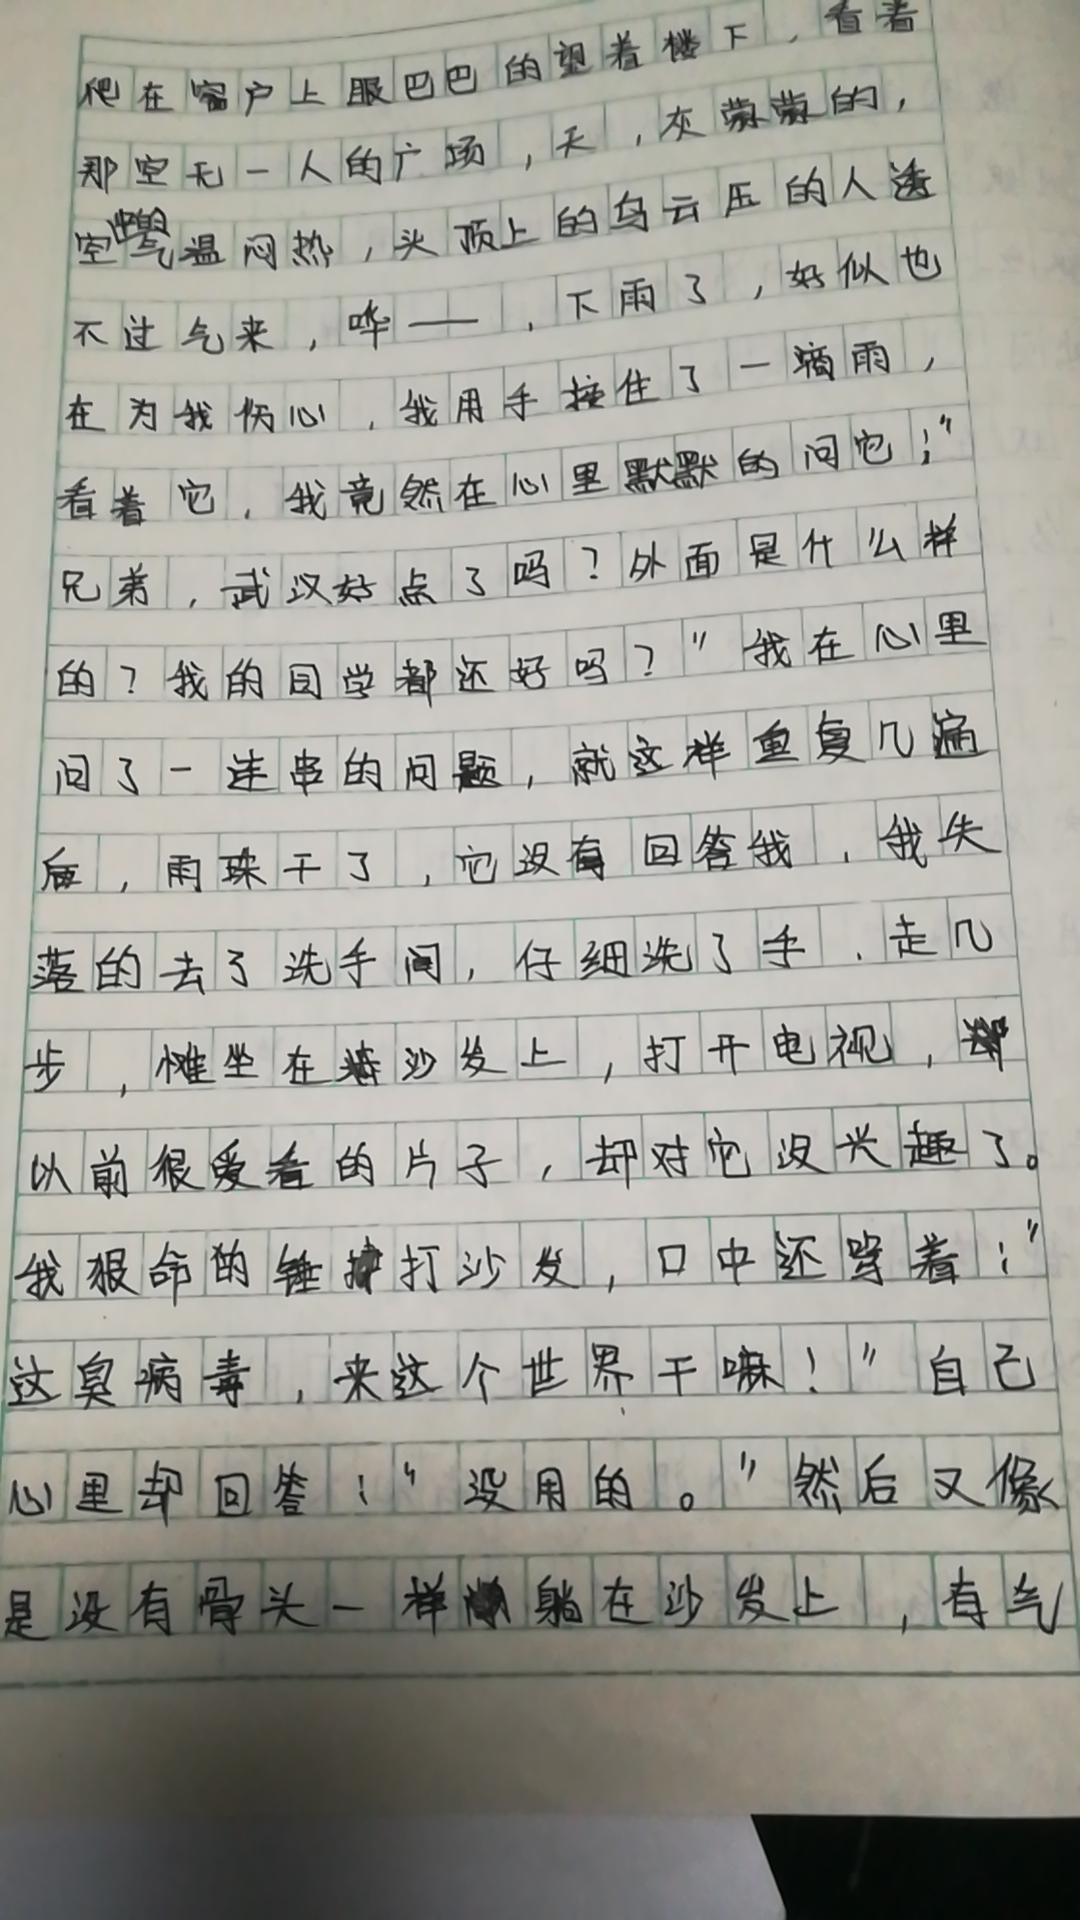 爬在窗户上眼巴巴的望着楼下，看着
那空无一人的广场，天，灰蒙蒙的，
空气温闷热，头顶上的乌云压的人透
不过气来，哗——，下雨了，好似也
在为我伤心，我用手接住了一滴雨，
看着它，我竟然在心里默默的问它：“
兄弟，武汉好点了吗？外面是什么样
的？我的同学都还好吗？”我在心里
问了一连串的问题，就这样重复几遍
后，雨珠干了，它没有回答我，我失
落的去了洗手间，仔细洗了手，走几
步，摊坐在沙发上，打开电视，
以前很爱看的片子，却对它没兴趣了。
我狠命的锤打沙发，口中还穿着：“
这臭病毒，来这个世界干嘛！”自己
心里却回答：“没用的。”然后又像
是没有骨头一样躺在沙发上，有气